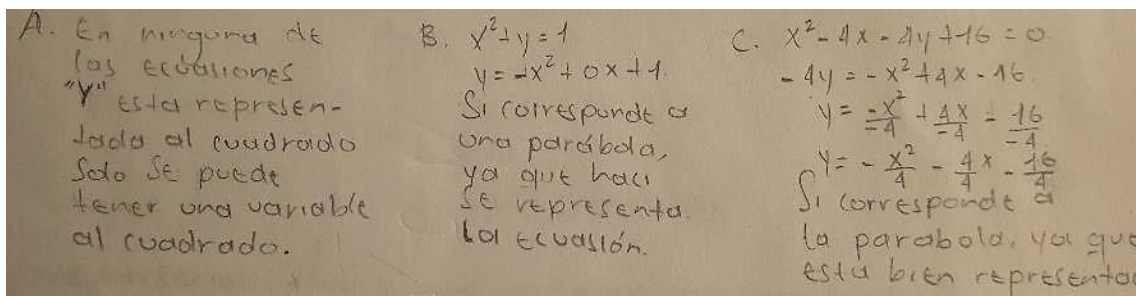 A. En ninguna de
las ecuasiones
"Y" esta represen-
tada al cuadrado
Solo se puede
tener una variable
al cuadrado.
B. x²+y=1
y=-x²+0x+1.
Si corresponde a
una parábola,
ya que haci
se representa.
la ecuasión.
C. x²-4x-4y+16=0
-4y=-x²+4x-16
y = -x²/-4 + 4x/-4 - 16/-4
y = - x²/4 - 4/4 x - 16/4
Si corresponde a
la parabola, ya que
esta bien representa